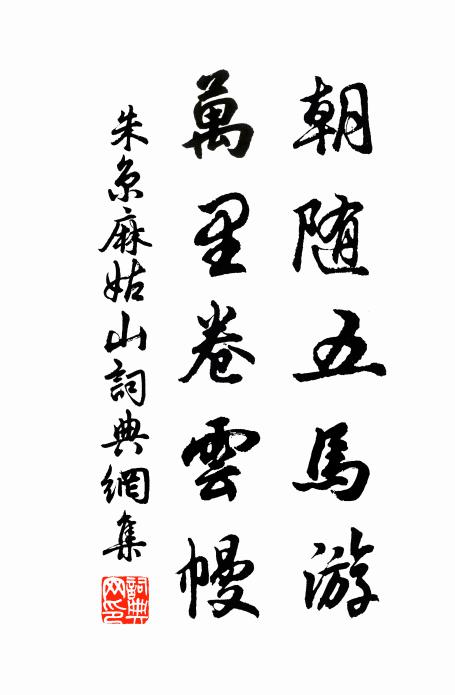 朝随五馬游
萬里卷雲幔
朱京麻姑山詞典網集
詞典网印